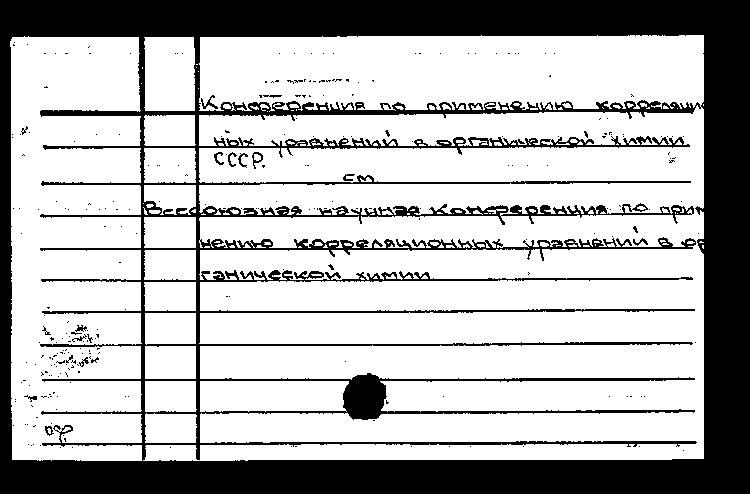 Конференция по применению корреляцио
ных уравнений в органической химии
СССР.
см
Всесоюзная научная конференция по прим
нению корреляционных уравнений в ор
ганической химии